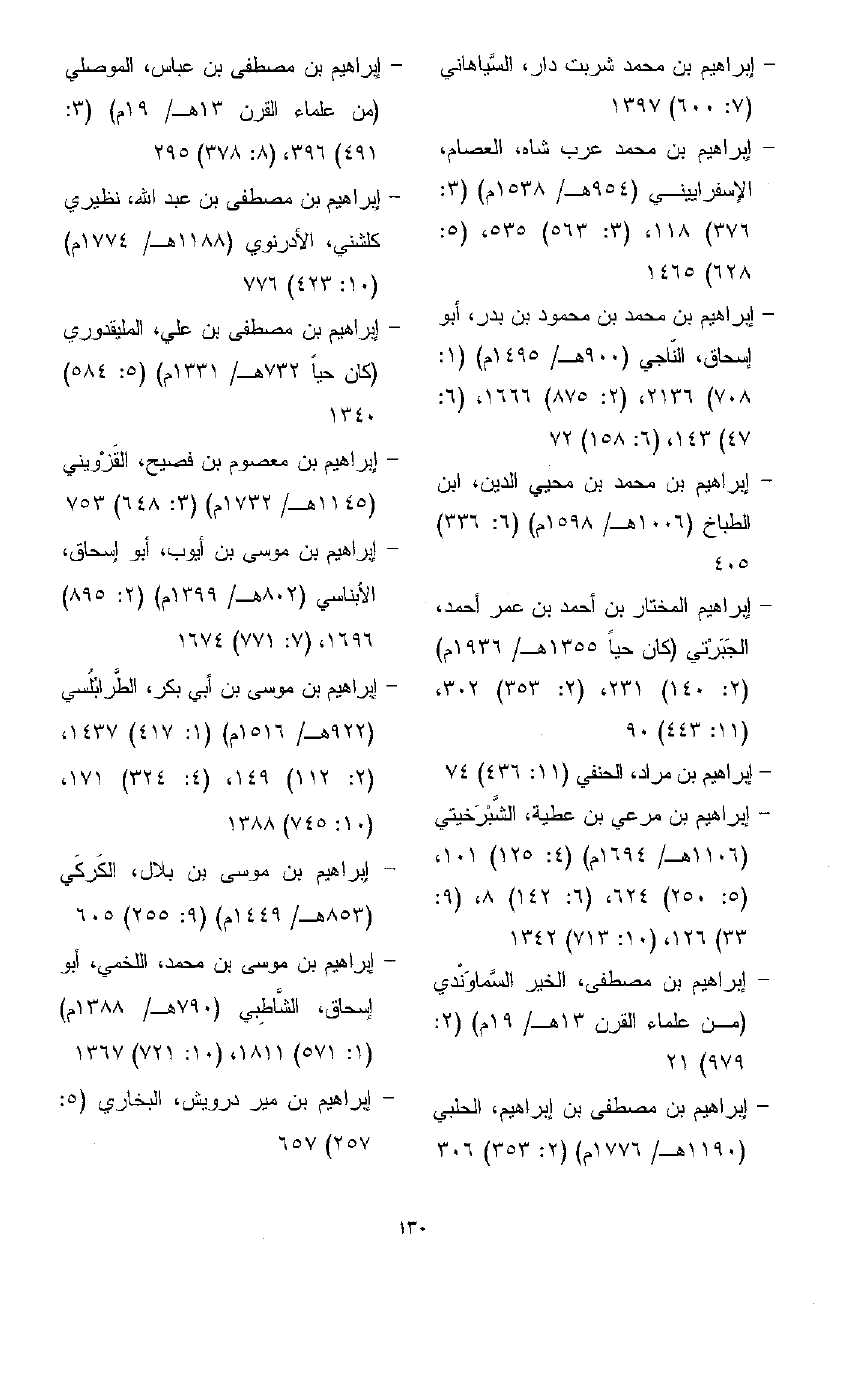 - إبراهيم بن محمد شربت دار، السَّياهاني
(٧: ٦٠٠) ١٣٩٧
- إبراهيم بن محمد عرب شاه، العصام،
الإسفراييني (٩٥٤هـ/ ١٥٣٨م) (٣:
٣٧٦) ١١٨، (٣: ٥٦٣) ٥٣٥، (٥:
٦٢٨) ١٤٦٥
- إبراهيم بن محمد بن محمود بن بدر، أبو
إسحاق، النَّاجي (٩٠٠هـ/ ١٤٩٥م) (١:
٧٠٨) ٢١٣٦، (٢: ٨٧٥) ١٦٦٦، (٦:
٤٧) ١٤٣، (٦: ١٥٨) ٧٢
- إبراهيم بن محمد بن محيي الدين، ابن
الطباخ (١٠٠٦هـ/ ١٥٩٨م) (٦: ٣٣٦)
٤٠٥
- إبراهيم المختار بن أحمد بن عمر أحمد،
الجَبَرْتي (كان حياً ١٣٥٥هـ/ ١٩٣٦م)
(٢: ١٤٠) ٢٣١، (٢: ٣٥٣) ٣٠٢،
(١١: ٤٤٣) ٩٠
- إبراهيم بن مراد، الحنفي (١١: ٤٣٦) ٧٤
- إبراهيم بن مرعي بن عطية، الشَّبْرَخيتي
(١١٠٦هـ/ ١٦٩٤م) (٤: ١٢٥) ١٠١،
(٥: ٢٥٠) ٦٢٤، (٦: ١٤٢) ٨، (٩:
٣٣) ١٢٦، (١٠: ٧١٣) ١٣٤٢
- إبراهيم بن مصطفى، الخير السَّماوَنْدي
(مـن علماء القرن ١٣هـ/ ١٩م) (٢:
٩٧٩) ٢١
- إبراهيم بن مصطفى بن إبراهيم، الحلبي
(١١٩٠هـ/ ١٧٧٦م) (٢: ٣٥٣) ٣٠٦
- إبراهيم بن مصطفى بن عباس، الموصلي
(من علماء القرن ١٣هـ/ ١٩م) (٣:
٤٩١) ٣٩٦، (٨: ٣٧٨) ٢٩٥
- إبراهيم بن مصطفى بن عبد الله، نظيري
كلشني، الأدرنوي (١١٨٨هـ/ ١٧٧٤م)
(١٠: ٤٢٣) ٧٧٦
- إبراهيم بن مصطفى بن علي، المليقدوري
(كان حياً ٧٣٢هـ/ ١٣٣١م) (٥: ٥٨٤)
١٣٤٠
- إبراهيم بن معصوم بن فصيح، القَزْويني
(١١٤٥هـ/ ١٧٣٢م) (٣: ٦٤٨) ٧٥٣
- إبراهيم بن موسى بن أيوب، أبو إسحاق،
الأبناسي (٨٠٢هـ/ ١٣٩٩م) (٢: ٨٩٥)
١٦٩٦، (٧: ٧٧١) ١٦٧٤
- إبراهيم بن موسى بن أبي بكر، الطَّرابُلُسي
(٩٢٢هـ/ ١٥١٦م) (١: ٤١٧) ١٤٣٧،
(٢: ١١٢) ١٤٩، (٤: ٣٢٤) ١٧١،
(١٠: ٧٤٥) ١٣٨٨
- إبراهيم بن موسى بن بلال، الكَركَي
(٨٥٣هـ/ ١٤٤٩م) (٩: ٢٥٥) ٦٠٥
- إبراهيم بن موسى بن محمد، اللخمي، أبو
إسحاق، الشَّاطِبي (٧٩٠هـ/ ١٣٨٨م)
(١: ٥٧١) ١٨١١، (١٠: ٧٢١) ١٣٦٧
- إبراهيم بن مير درويش، البخاري (٥:
٢٥٧) ٦٥٧
١٣٠